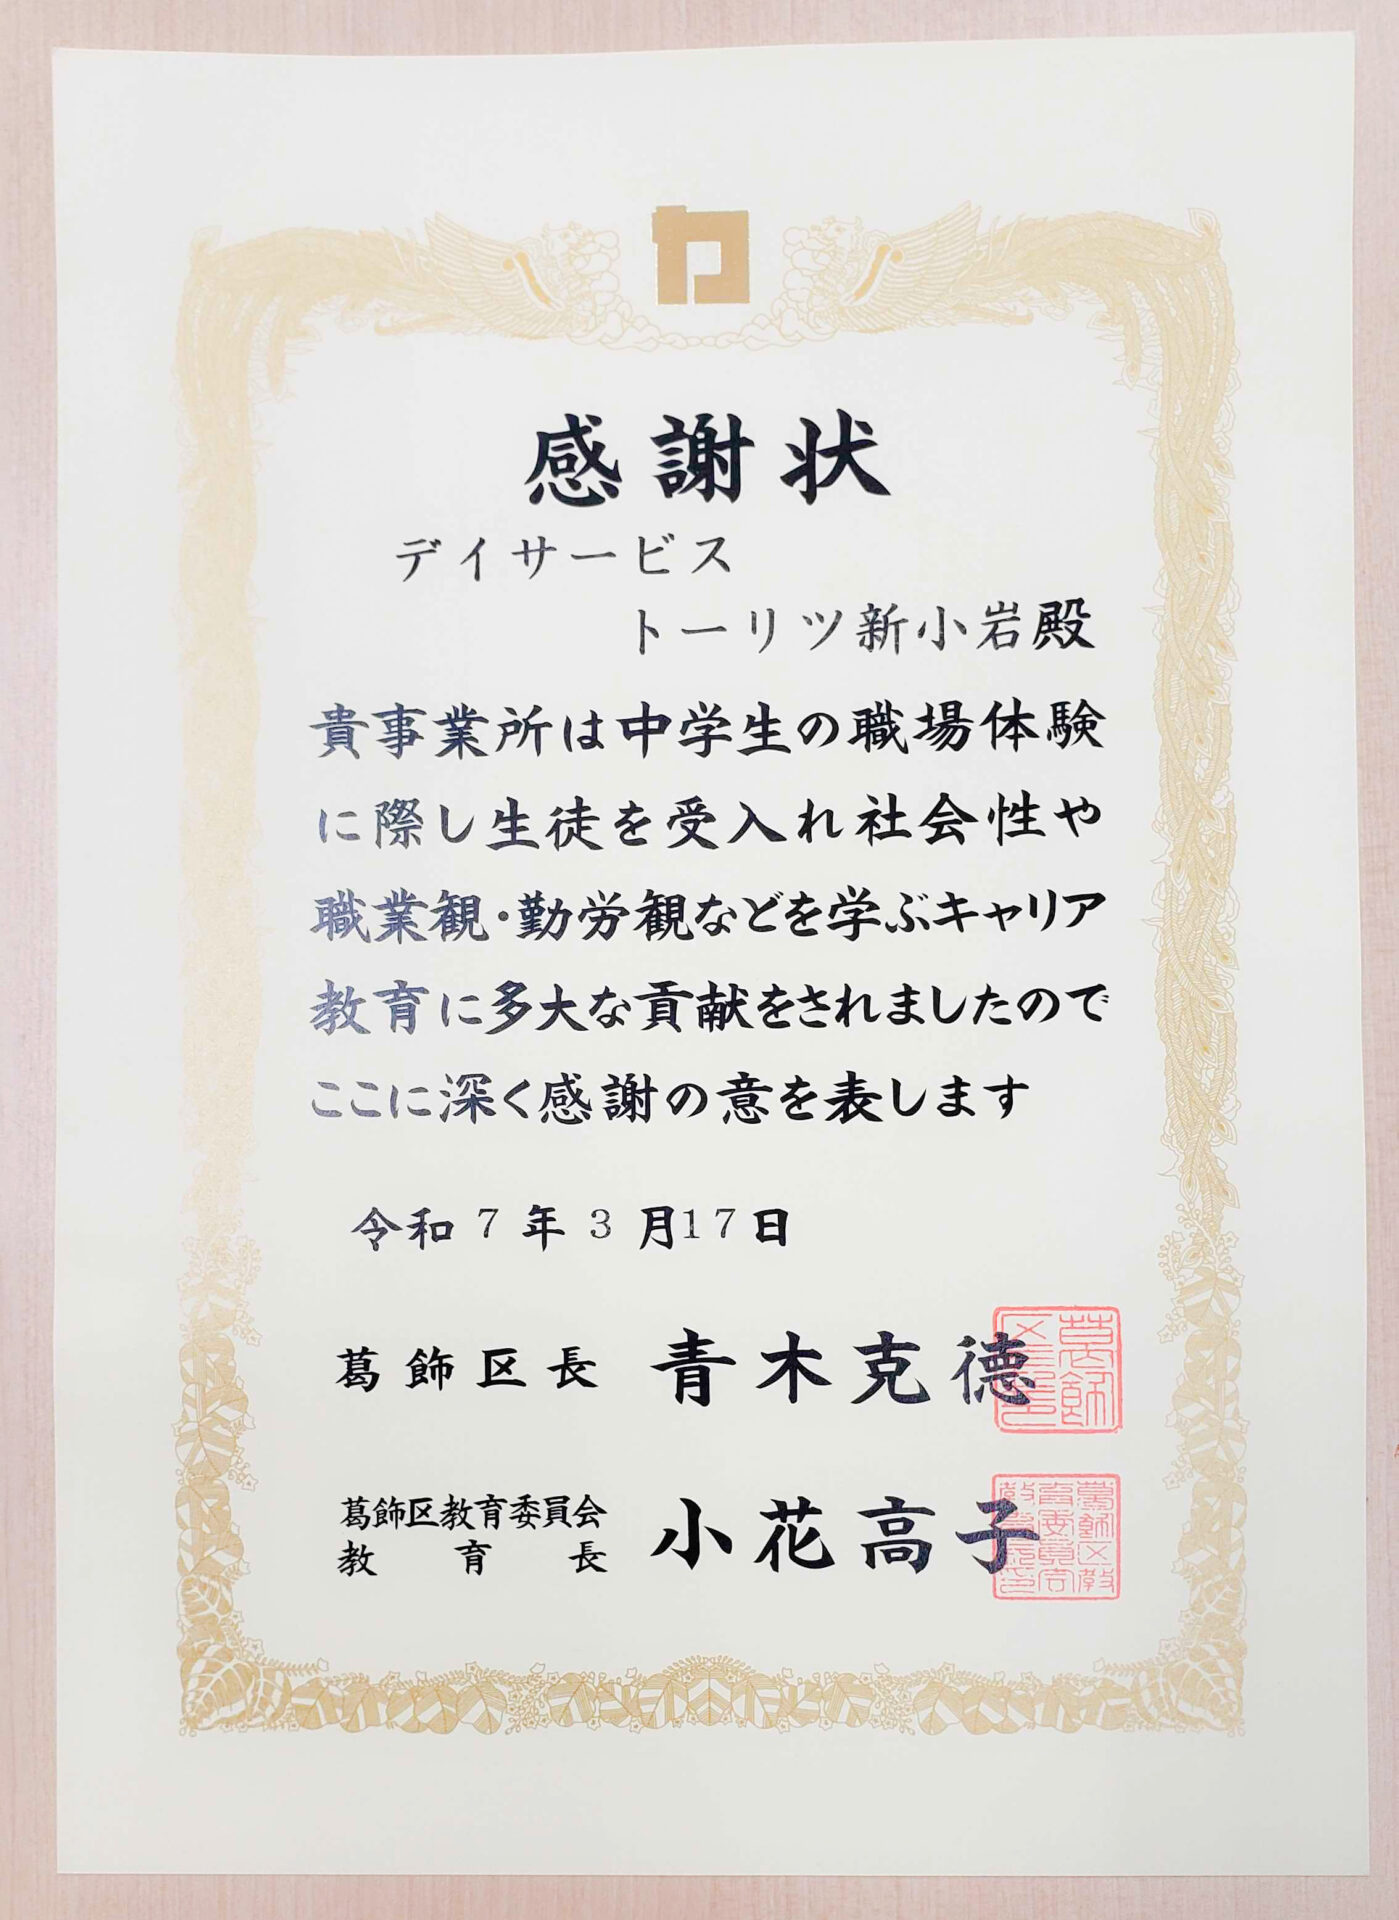 感謝状
デイサービス
トーリツ新小岩殿
貴事業所は中学生の職場体験
に際し生徒を受入れ社会性や
職業観・勤労観などを学ぶキャリア
教育に多大な貢献をされましたので
ここに深く感謝の意を表します
令和7年3月17日
葛飾区長 青木克德
葛飾区教育委員会
教育長 小花高子